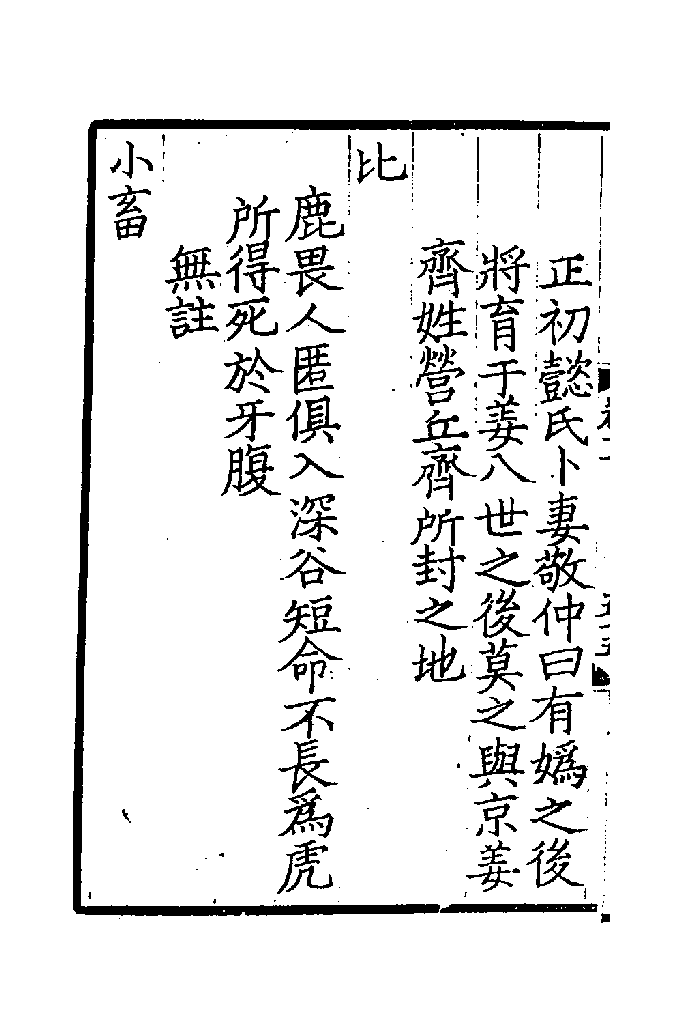 正初懿氏卜妻敬仲曰有嬀之後
將育于姜八世之後莫之與京姜
齊姓營丘齊所封之地
比
鹿畏人匿俱入深谷短命不長爲虎
所得死於牙腹
無註
小畜